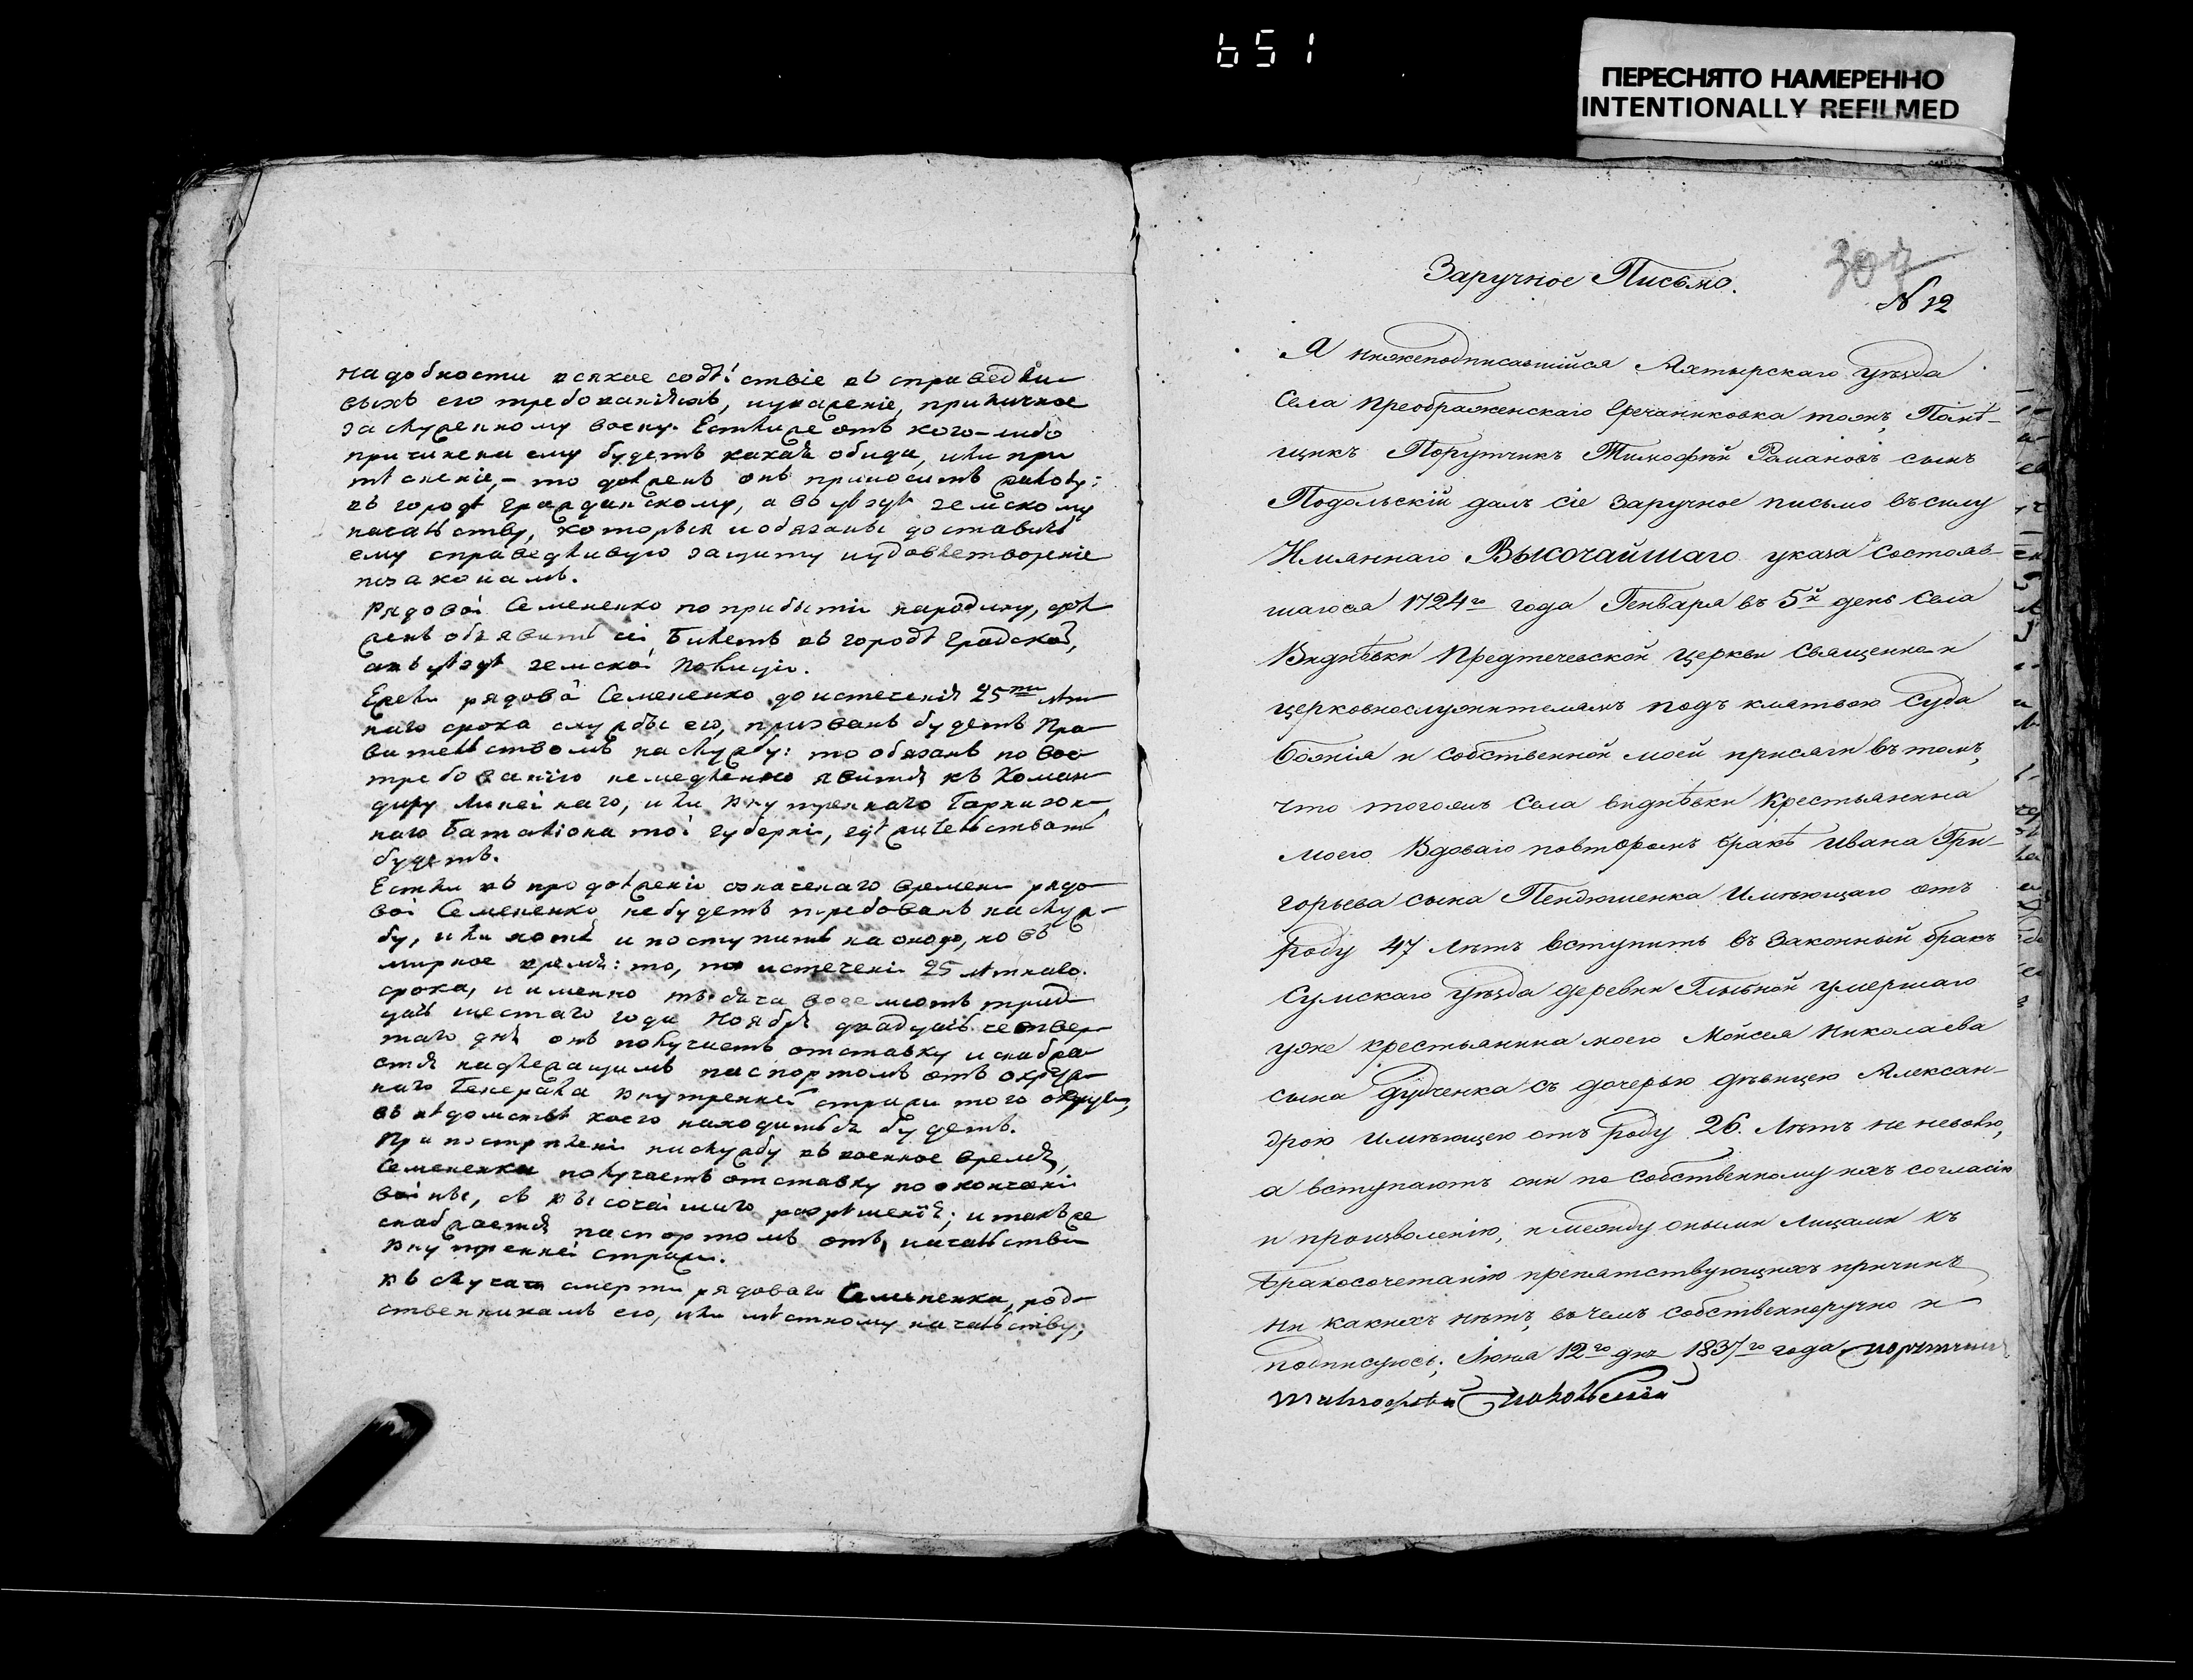 651
ПЕРЕСНЯТО НАМЕРЕННО
INTENTIONALLY REFILMED
надобности всякое содѣйствіе въ справедли-
выхъ его требованіяхъ, и уваженіе, приличное
заслуженному воену. Естли же отъ кого-либо
причинена ему будетъ какая обида, или при
тѣсненіе, - то долженъ онъ приносить жалобу:
въ городѣ гражданскому, а во уѣздѣ земскому
начальству, которыя и обязаны доставить
ему справедливую защиту и удовлетвореніе
по законамъ.
Рядовой Семененко по прибытіи народину, дол
женъ объявить сей билетъ въ городѣ градской,
а въ уѣздѣ земской полиціи.
Ежели рядовой Семененко до истеченія 25ти лѣт
наго срока службы его, призванъ будетъ Пра-
вительствомъ на службу: то обязанъ по вос
требованію немедленно явится къ Коман-
диру линейнаго, или внутренняго Гарнизон-
наго баталіона той губерніи, гдѣ жительствовать
будетъ.
Естли въ продолженіи означенаго времени рядо-
вой Семененко, не будетъ требованъ на служ-
бу, или хотя и поступитъ на оною, но въ
мирное время: то, по истеченіи 25 лѣтнаго
срока, и именно тысяча восемсотъ трид
цать шестаго года Ноября двадцать четвер-
таго дня онъ получаетъ отставку и снабжа
стся надлежащимъ паспортомъ отъ окруж-
наго Генерала внутренней стражи того округа,
въ вѣдомствѣ коего находиться будетъ.
При поступленіи на службу въ военное время,
Семененко получаетъ отставку по окончаніи
войны, съ высочайшаго разрѣшенія; и такъ же
снабжается паспортомъ отъ начальства
внутренней стражи.
Въ случаѣ смерти рядоваго Семененка, род-
ственникамъ его, или мѣстному начальству,
307
Заручное Письмо.
№ 12
Я нижеподписавшійся Ахтырскаго уѣзда
Села Преображенскаго Гречаниковка тожъ, Помѣ-
щикъ Порутчикъ Тимофѣй Романовъ сынъ
Подольскій далъ сіе заручное письмо въ силу
Имяннаго Высочайшаго указа состояв-
шагося 1724го года Генваря въ 5й день Села
Виднѣвки Предтечевской церкви Священно и
церковнослужителямъ подъ клятвою Суда
божія и собственной моей присяги въ томъ,
что тогожъ Села виднѣвки Крестьянина
моего Вдоваго повторомъ бракѣ Ивана Гри-
горьева сына Пендюшенка Имѣющаго отъ
роду 47 лѣтъ вступить въ законный бракъ
Сумскаго уѣзда деревни Глыбной умершаго
уже крестьянина моего Мойсея Николаева
сына Дудченка съ дочерью дѣвицею Алексан-
дрою имѣющею отъ роду 26. лѣтъ не неволю,
а вступаютъ они по собственному ихъ согласію
и произволенію, и между оными лицами къ
бракосочетанію препятствующихъ причинъ
ни какихъ нѣтъ, въ чемъ собственноручно и
подписуюсь. Іюня 12го дня 1837го года порутчикъ
тимофѣй подольскій